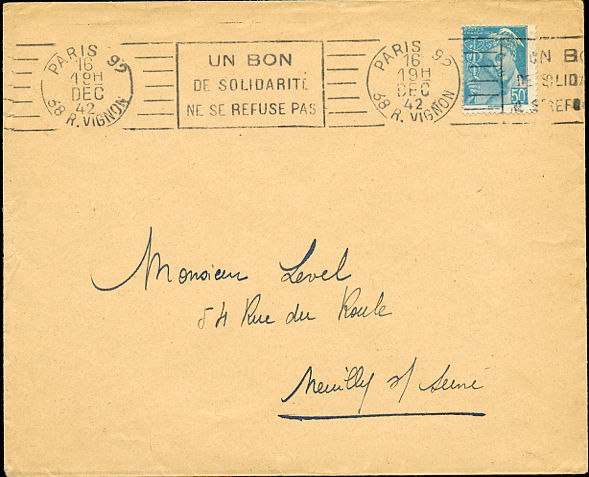 PARIS 92
16
19H
DEC
42
68 R. VIGNON
UN BON
DE SOLIDARITÉ
NE SE REFUSE PAS
PARIS 92
16
19H
DEC
42
68 R. VIGNON
UN BO
DE SOLIDA
NE SE REFU
50
Monsieur Level
54 Rue du Roule
Neuilly s/ Seine